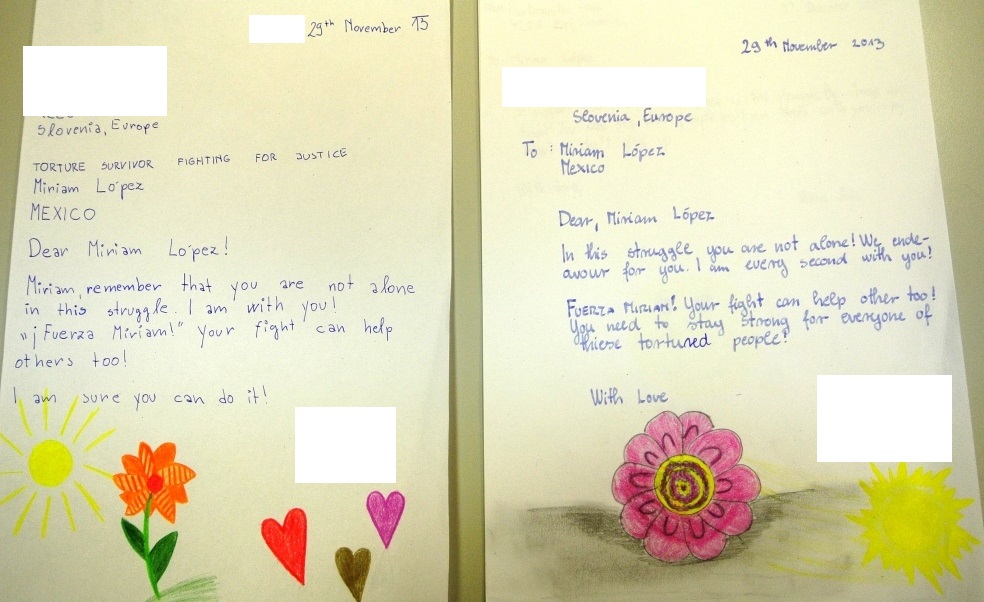 29th November 13
Slovenia, Europe
TORTURE SURVIVOR FIGHTING FOR JUSTICE
Miriam López
MEXICO
Dear Miriam López!
Miriam, remember that you are not alone
in this struggle. I am with you!
"¡Fuerza Miriam!" your fight can help
others too!
I am sure you can do it!
29th November 2013
Slovenia, Europe
To: Miriam López
Mexico
Dear, Miriam López
In this struggle you are not alone! We ende-
avour for you. I am every second with you!
FUERZA MIRIAM! Your fight can help other too!
You need to stay strong for everyone of
thiese tortured people!
With Love